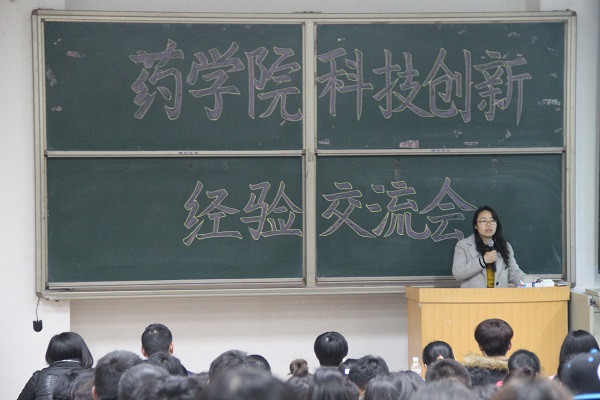 药学院科技创新
经验交流会